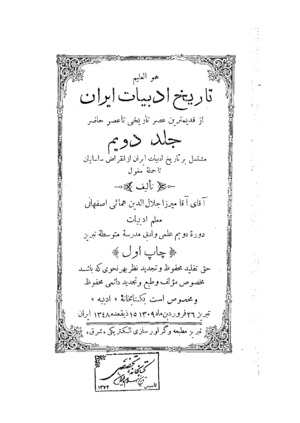 هو العلیم
تاریخ ادبیات ایران
از قدیمترین عصر تاریخی تا عصر حاضر
جلد دویم
مشتمل بر تاریخ ادبیات ایران از انقراض ساسانیان
تا حملهٔ مغول
تألیف
آقای آقا میرزا جلال الدین همائی اصفهانی
معلم ادبیات
دورهٔ دویم علمی و ادبی مدرسهٔ متوسطهٔ تبریز
چاپ اول
حق تقلید محفوظ و تجدید نظر بهر نحوی که باشد
مخصوص مؤلف و طبع و تجدید دائمی محفوظ
و مخصوص است بکتابخانهٔ « ادبیه »
تبریز ۲۶ فروردین ماه ۱۳۰۹ ۱۵ ذیقعده ۱۳۴۸ ایران
تبریز مطبعه و گراورسازی الکتریکی « شرق »
کتابخانه تخصصی
۱۳۷۴